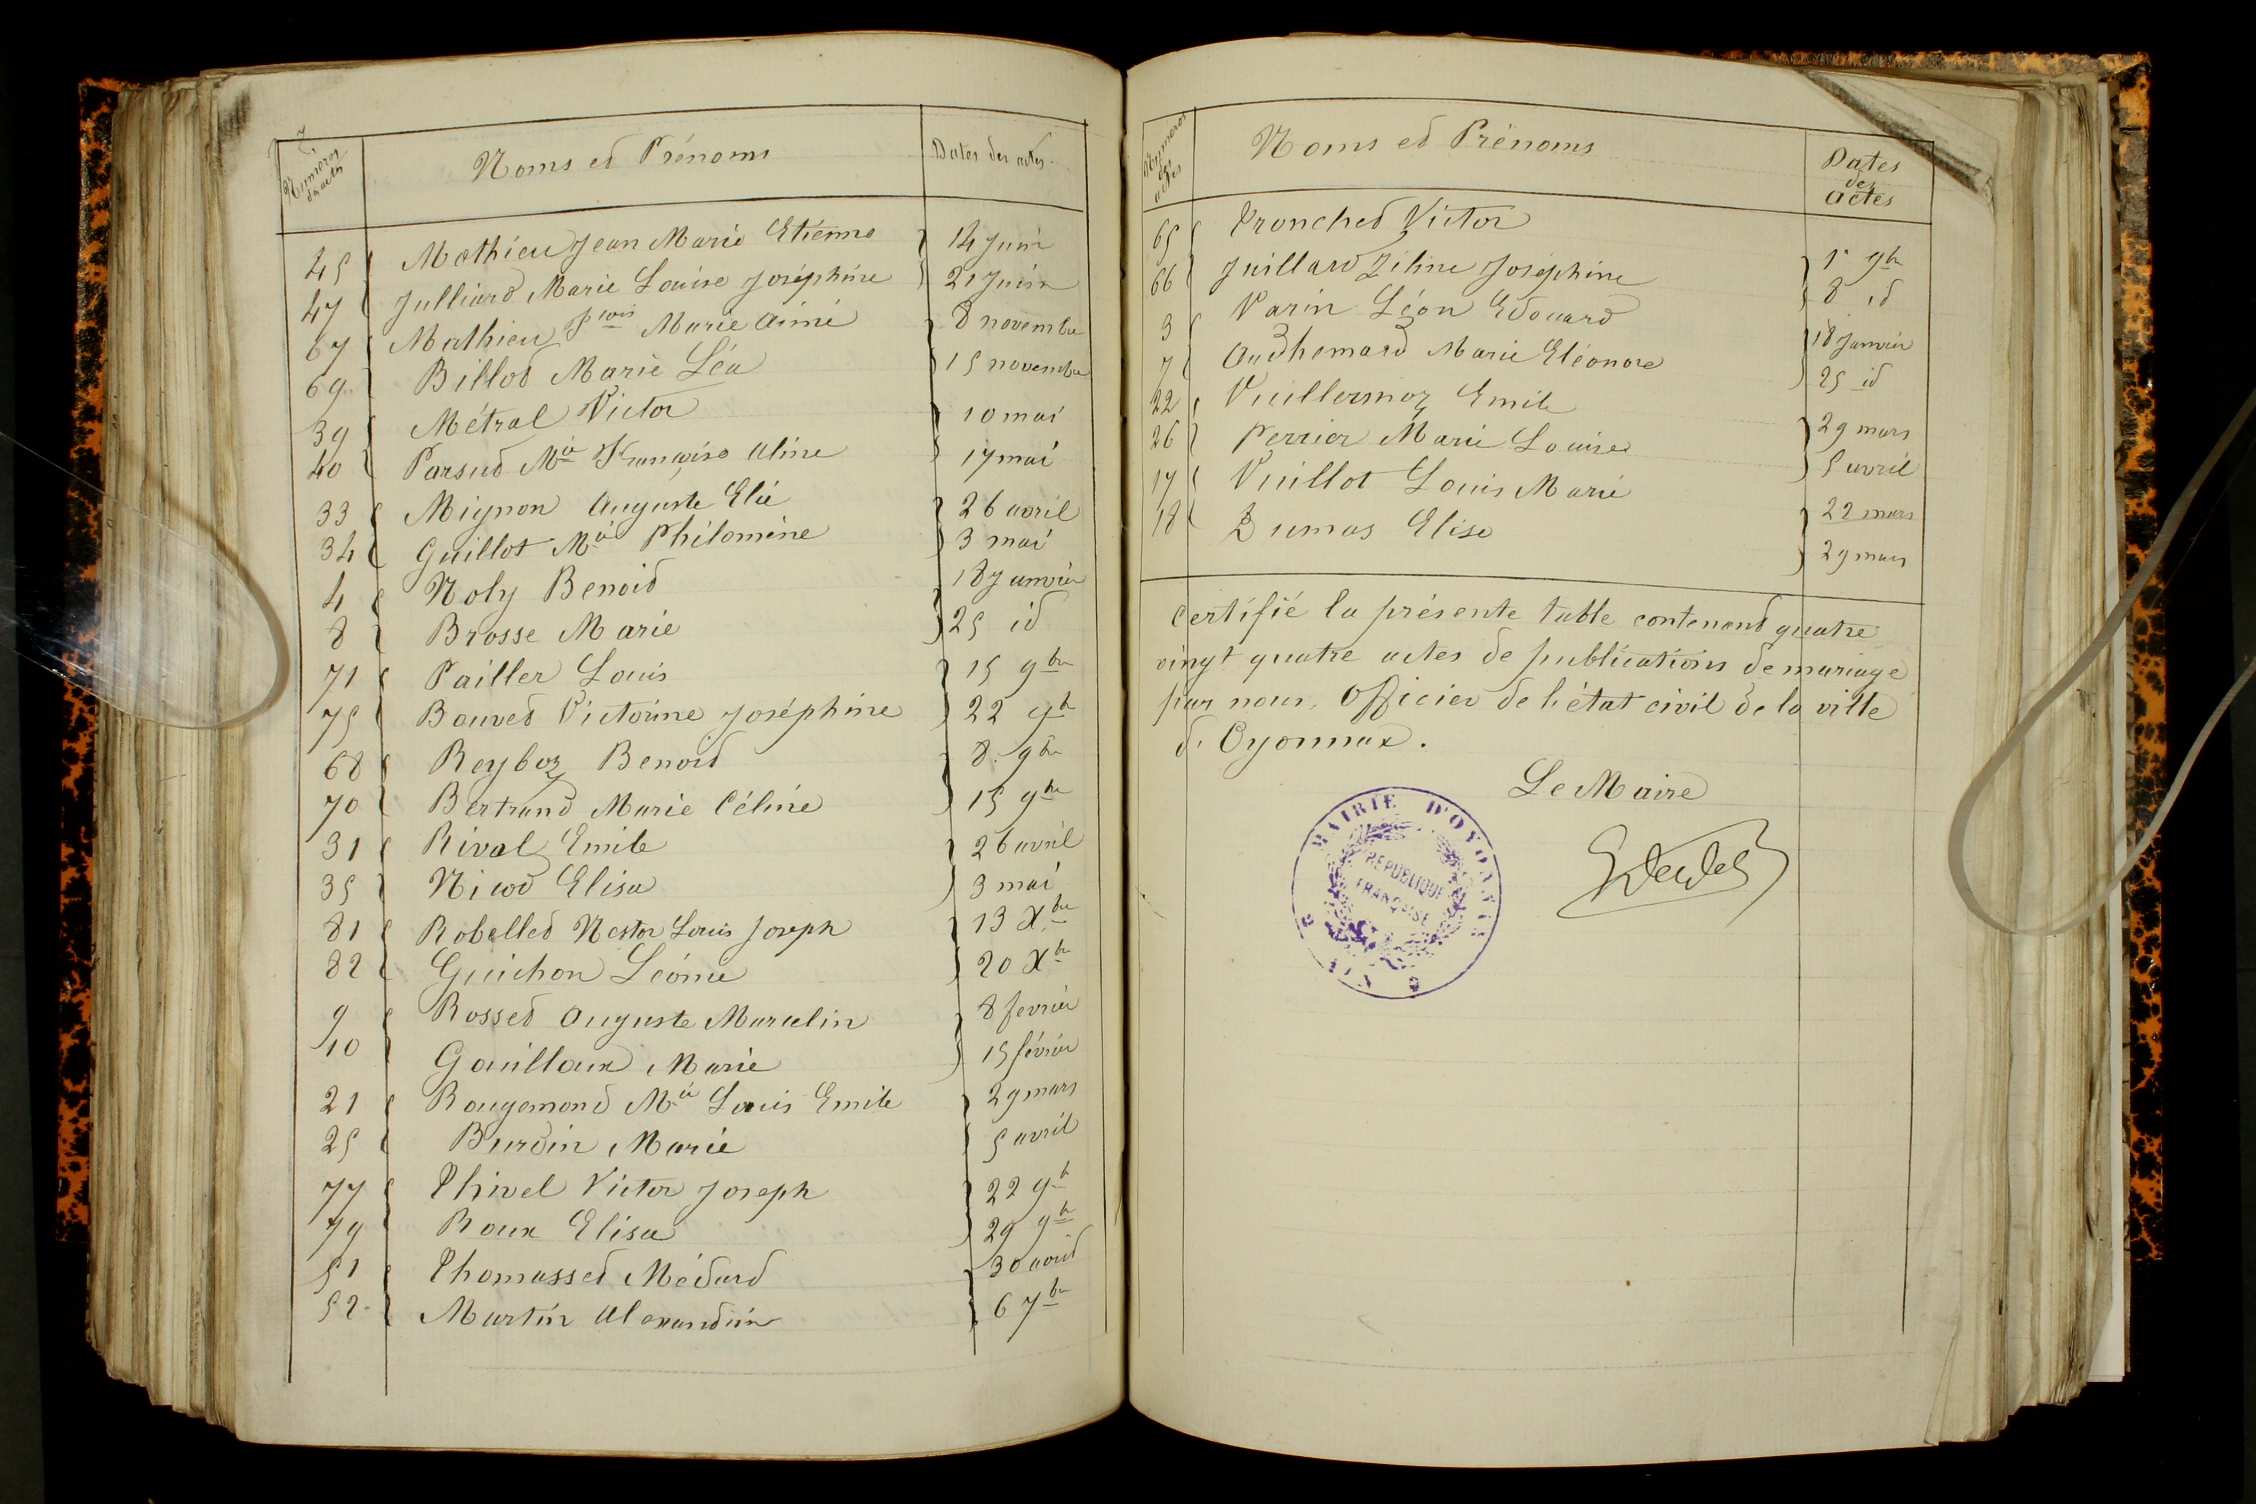 Numéros des actes
Noms et Prénoms
Dates des actes
45 Mathieu Jean Marie Etienne 14 Juin
47 Julliard Marie Louise Joséphine 21 Juin
67 Mathieu Fçois Marie Aimé 8 novembre
69 Billod Marie Léa 15 novembre
39 Métral Victor 10 mai
40 Parsud Mie Françoise Aline 17 mai
33 Mignon Auguste Elie 26 avril
34 Guillot Mie Philomène 3 mai
4 Noly Benoid 18 Janvier
8 Brosse Marie 25 id
71 Pailler Louis 15 9bre
75 Bouved Victorine Joséphine 22 9b
68 Reyboz Benoid 8 9bre
70 Bertrand Marie Céline 15 9bre
31 Rival Emile 26 avril
35 Nicod Elisa 3 mai
81 Robelled Nestor Louis Joseph 13 Xbre
82 Guichon Léonie 20 Xbre
9 Rossed Auguste Marcelin 8 fevrier
10 Gouilloux Marie 15 février
21 Rougemond Mie Louis Emile 29 mars
25 Burdin Marie 5 avril
77 Thivel Victor Joseph 22 9b
79 Roux Elisa 29 9b
51 Thomassed Médard 30 aoûd
52 Martin Alexandrine 6 7bre
Numéros des actes
Noms et Prénoms
Dates des actes
65 Tronched Victor 1er 9b
66 Juillard Zéline Joséphine 8 id
3 Varin Léon Edouard 18 Janvier
7 Audhemard Marie Eléonore 25 id
22 Vuillermoz Emile 29 mars
26 Perrier Marie Louise 5 avril
17 Vuillot Louis Marie 22 mars
18 Dumas Elise 29 mars
Certifié la présente table contenand quatre
vingt quatre actes de publications de mariage
par nous, Officier de l'état civil de la ville
d'Oyonnax.
Le Maire
MAIRIE D'OYONNAX
REPUBLIQUE
FRANÇAISE